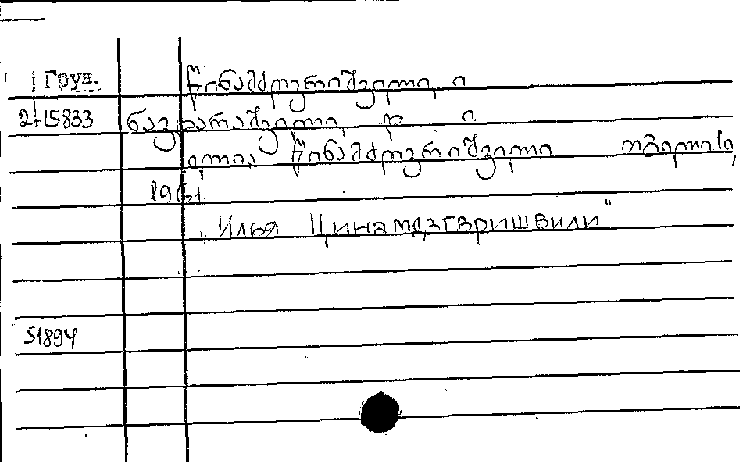 Груз. წინამძღვრიშვილი ი
2-15833 ნავდარაშვილი, დ. ი.
ილია წინამძღვრიშვილი თბილისი,
1961
„Илья Цинамдзгвришвили"
51894